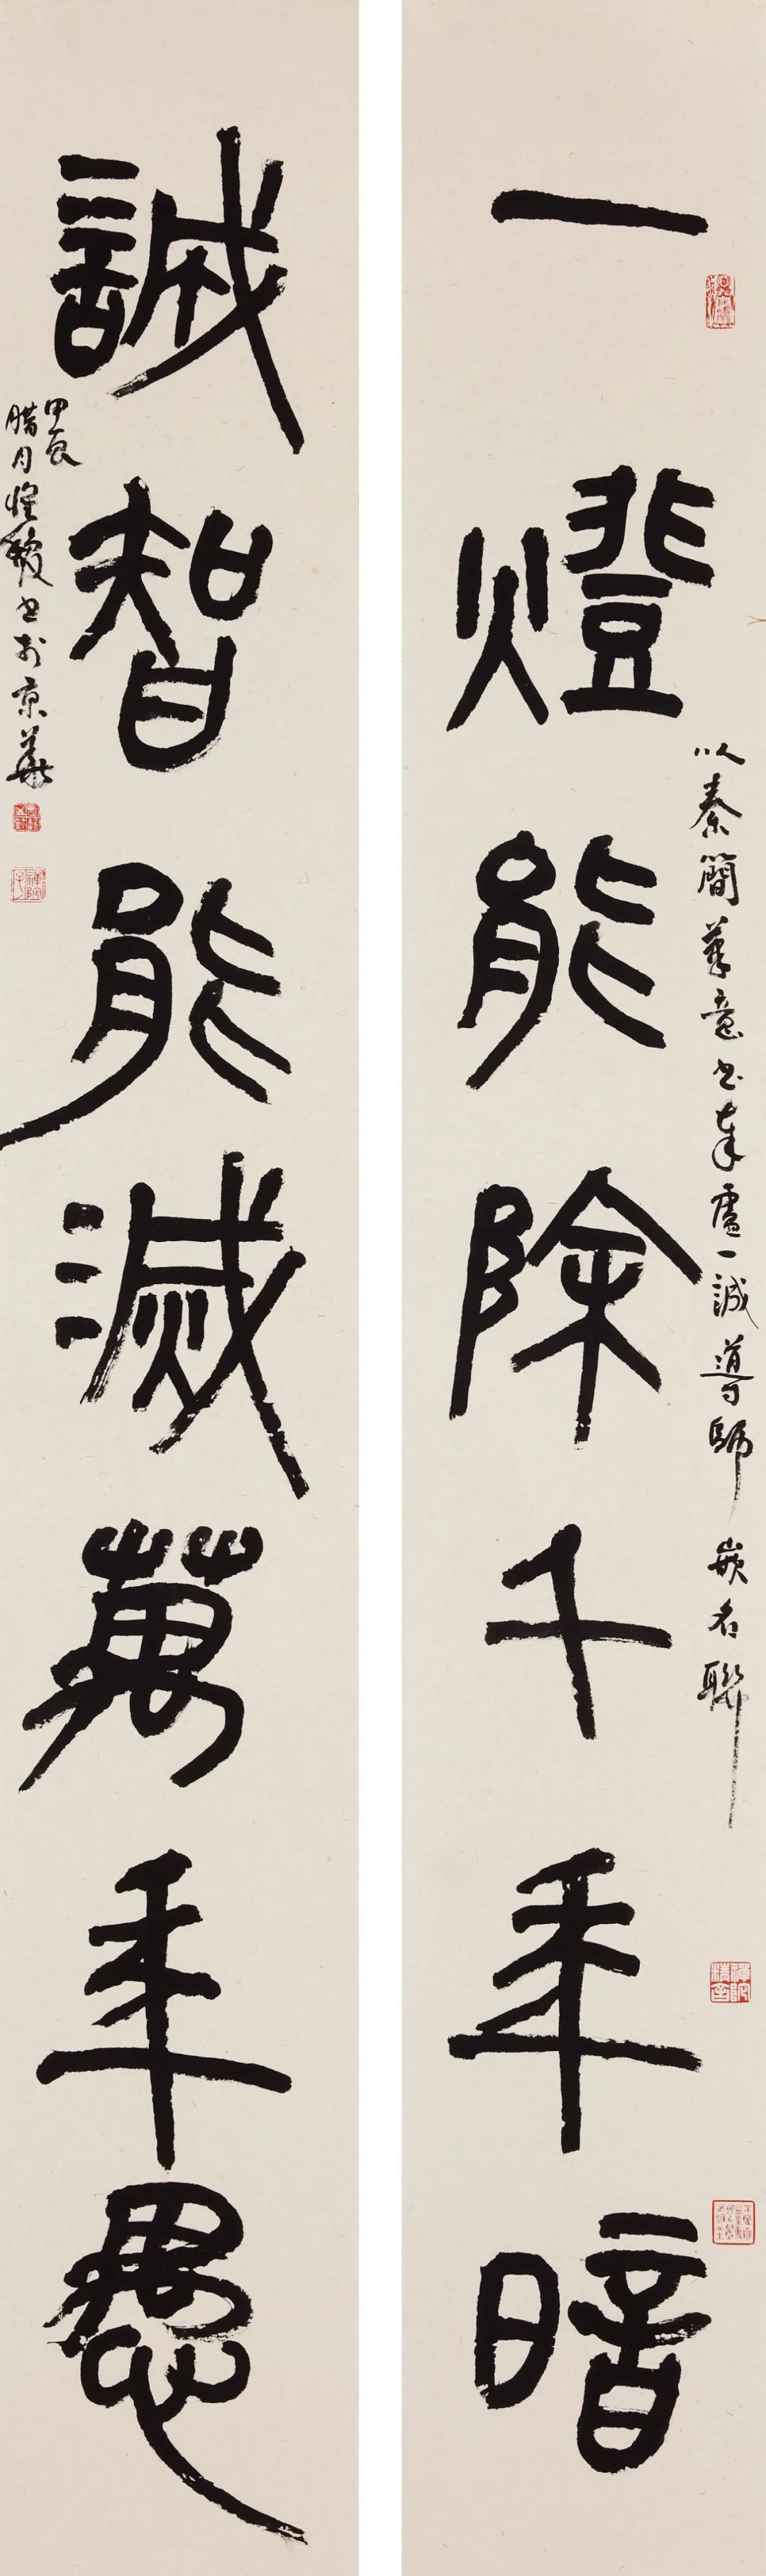 一燈能除千年暗
以秦簡筆意書奉盧一誠導師嵌名聯
誠智能滅萬年愚
甲辰
腊月惺𩡺书於京華